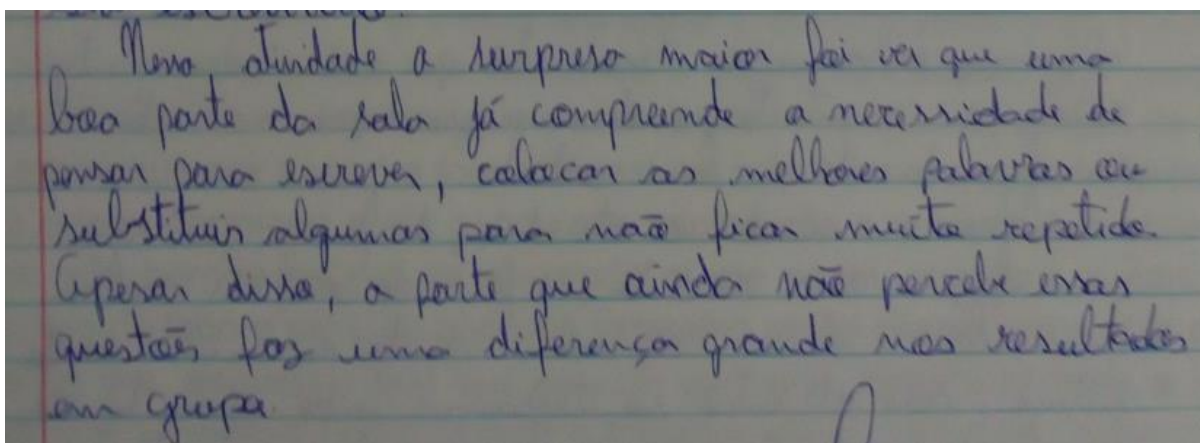 Nessa atividade a surpresa maior foi ver que uma
boa parte da sala já compreende a necessidade de
pensar para escrever, colocar as melhores palavras ou
substituir algumas para não ficar muito repetido.
Apesar disso, a parte que ainda não percebe essas
questões faz uma diferença grande nos resultados
em grupo.